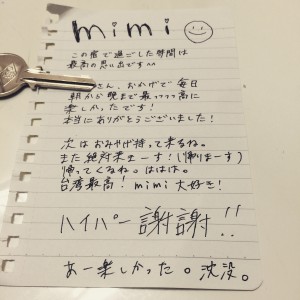 mimi
この宿で過ごした時間は
最高の思い出です^^
さん、おかげで毎日
朝から晩まで最っっっ高に
楽しかったです!
本当にありがとうございました!
次はおみやげ持って来るね。
また絶対来まーす!(帰りまーす)
帰ってくるね。ははは。
台湾最高! mimi 大好き!
ハイパー謝謝!!
あー楽しかった。沈没。